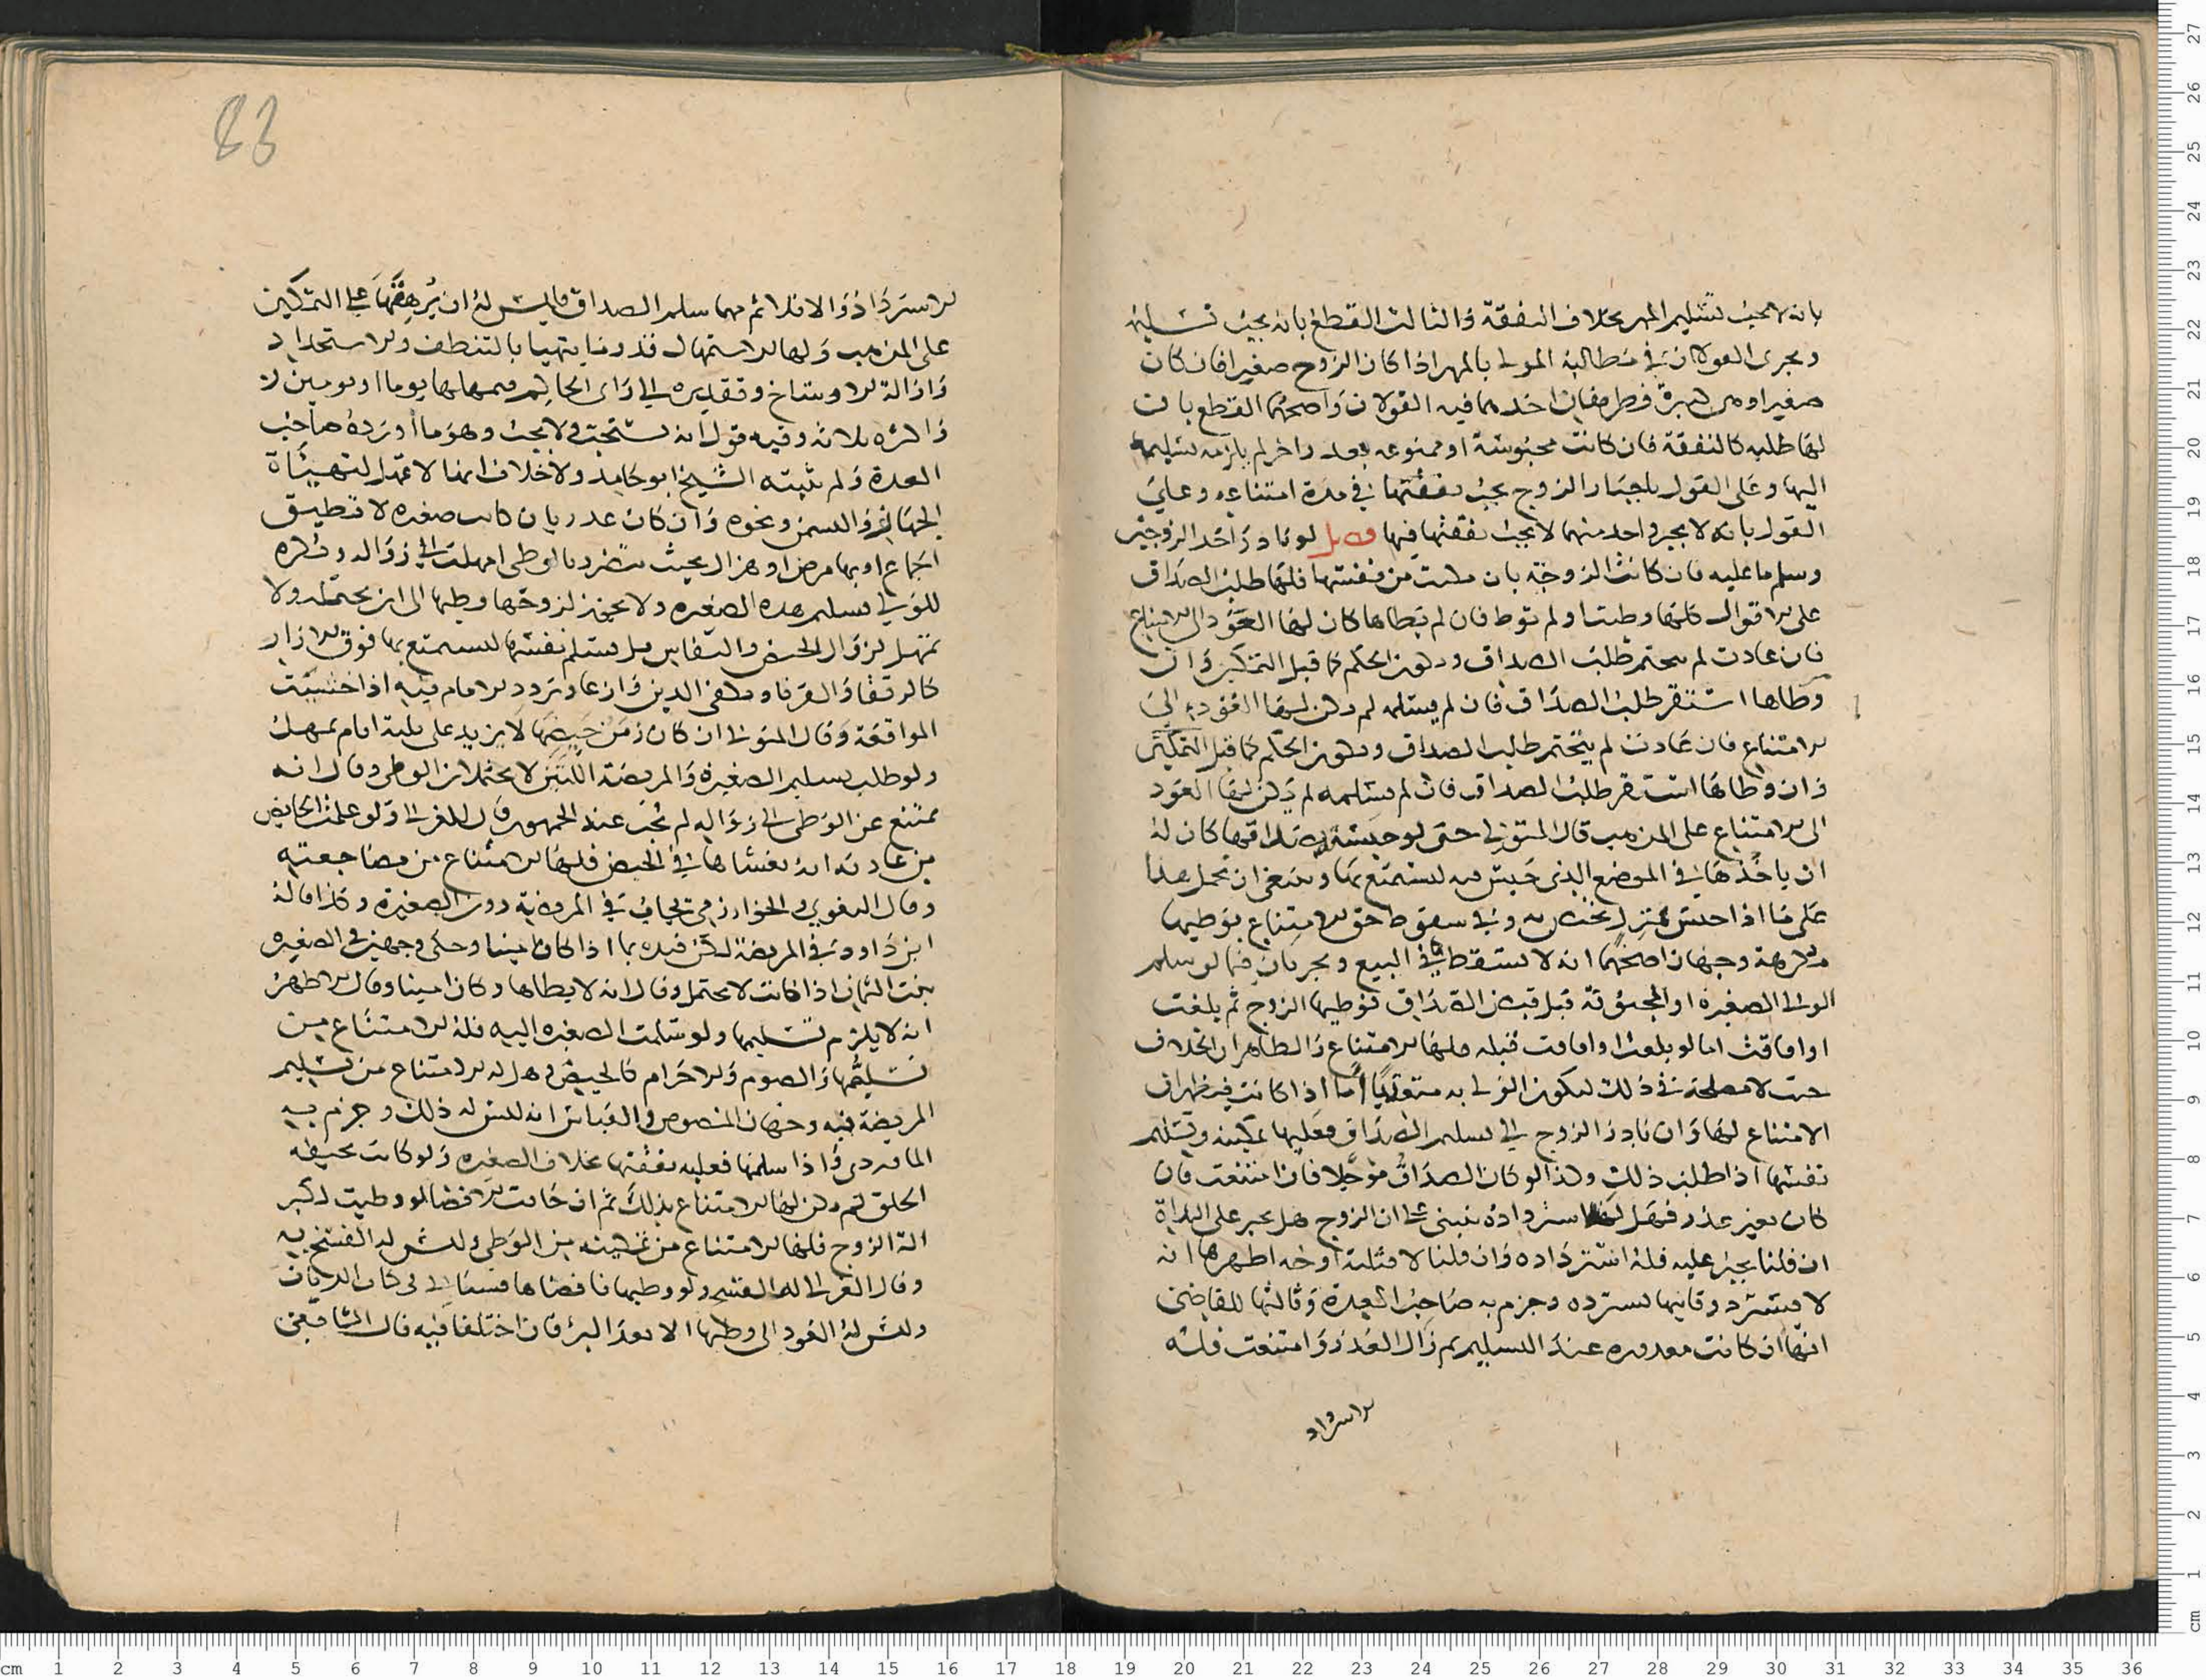 بانه لا يجب تسليم المهر بخلاف النفقة والثالث القطع بانه يجب تسليمه
ويجرى القولان في مطالبة المولى بالمهر اذا كان الزوج صغيرا فان كان
صغيرا وهى كبيرة فطريقان احدهما فيه القولان واصحهما القطع بان
لها طلبه كالنفقة فان كانت محبوسة او ممنوعه بعذر اخر لم يلزمه تسليمه
اليها وعلى القول باجبار الزوج يجب نفقتها في مدة امتناعه وعلى
القول بانه لا يجبر واحد منهما لا يجب نفقتها فيها فصل لو بادر احد الزوجين
وسلم ما عليه فان كانت الزوجة بان مكنت من نفسها فلها طلب الصداق
على الاقوال كلها وطئت او لم توط فان لم يطاها كان لها العود الى الامتناع
فان عادت لم يتحتم طلب الصداق ويكون الحكم كما قبل التمكين وان
وطاها استقر طلب الصداق فان لم يسلمه لم يكن لها العود الى
الامتناع فان عادت لم يتحتم طلب الصداق ويكون الحكم كما قبل التمكين
وان وطاها استقر طلب الصداق فان لم يسلمه لم يكن لها العود
الى الامتناع على المذهب قال المتولى حتى لو حبسته بصداقها كان له
ان ياخذها في الموضع الذى حبس فيه ليستمتع بها وينبغى ان يحمل هذا
على ما اذا حبس بمنزل يختص به وفي سقوط حق الامتناع بوطيها
مكرهة وجهان اصحهما انه لا يسقط كما في البيع ويجريان فيما لو سلم
الولى الصغيرة او المجنونة قبل قبض الصداق فوطيها الزوج ثم بلغت
او افاقت اما لو بلغت او افاقت قبله فلها الامتناع والظاهر ان الخلاف
حيث لا مصلحة في ذلك ليكون الولى به متعديا اما اذا كانت فيظهر ان
الامتناع لها وان بادر الزوج الى تسليم الصداق فعليها تمكينه وتسليم
نفسها اذا طلب ذلك وكذا لو كان الصداق مؤجلا فان امتنعت فان
كان بغير عذر فهل له استرداده ينبنى على ان الزوج هل يجبر على البداة
ان قلنا يجبر عليه فله استرداده وان قلنا لا فثلثة اوجه اظهرها انه
لا يسترد وثانيها يسترده وجزم به صاحب العدة وثالثها للقاضى
انها ان كانت معذوره عند التسليم ثم زال العذر وامتنعت فله
الاسترداد
الاسترداد والا فلا ثم مهما سلم الصداق فليس له ان يرهقها على التمكين
على المذهب ولها الاستمهال قدر ما يتهيا بالتنظف والاستحداد
وازالة الاوساخ وتقديره الى راى الحاكم فيمهلها يوما او يومين
واكثره ثلاثة وفيه قول انه يستحب ولا يجب وهو ما اورده صاحب
العدة ولم يثبته الشيخ ابو حامد ولا خلاف انها لا تمهل لتهيئة
الجهاز والسمن ونحوه وان كان عذر بان كانت صغيره لا تطيق
الجماع او بها مرض او هزال بحيث تتضرر بالوطى امهلت الى زواله ويكره
للولى تسليم هذه الصغيره ولا يجوز لزوجها وطيها الى ان يحتمله ولا
تمهل لزوال الحيض والنفاس بل يسلم نفسها ليستمتع بها فوق الازار
كالرتقا والقرنا وفى الدين وان عاد تردد الامام فيه اذا خشيت
المواقعة وقال المتولى ان كان زمن حيضها لا يزيد على ثلثة ايام تمهل
ولو طلب تسليم الصغيرة والمريضة اللتين لا يحتملان الوطى وقال انه
ممتنع عن الوطى الى زواله لم يجب عند الجمهور قال الغزالى ولو علمت الحايض
من عادته انه يغشاها في الحيض فلها الامتناع من مضاجعته
وقال البغوي والخوارزمى يجاب في المريضة دون الصغيرة وكذا قاله
ابن داود في المريضة لكن قيده بما اذا كان امينا وحكى وجهين في الصغيره
بنت الثمان اذا كانت لا تحتمل وقال انه لا يطاها وكان امينا وقال الاظهر
انه لا يلزم تسليمها ولو سلمت الصغيره اليه فله الامتناع من
تسلمها والصوم والاحرام كالحيض وهل له الامتناع من تسليم
المريضة فيه وجهان المنصوص والقياس انه ليس له ذلك وجزم به
الماوردى واذا سلمها فعليه نفقتها بخلاف الصغيره ولو كانت نحيفه
الخلق لم يكن لها الامتناع بذلك ثم ان خافت الافضا لو وطيت لكبر
الة الزوج فلها الامتناع من تمكينه من الوطى وليس له الفسخ به
وقال الغزالى له الفسخ ولو وطيها فافضاها فسياتى في كتاب الديات
وليس له العود الى وطيها الا بعد البرء فان اختلفا فيه قال الشافعى